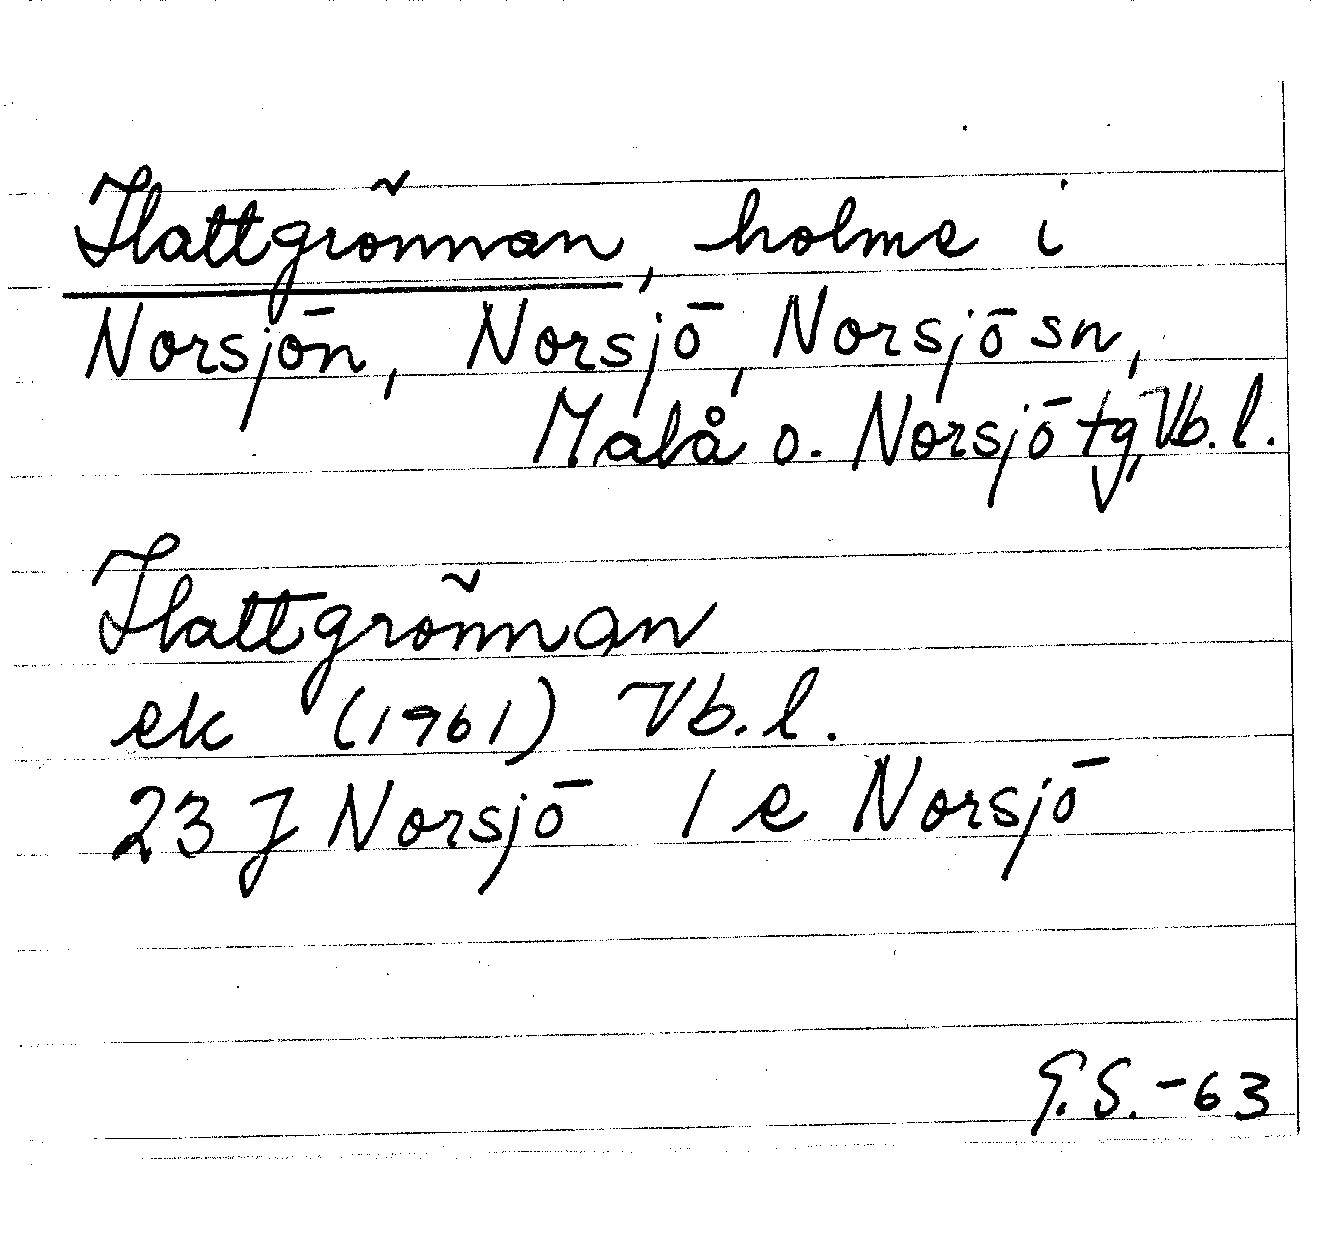 Flattgrönnan, holme i
Norsjön, Norsjö, Norsjö sn,
Malå o. Norsjö tg, Vb. l.
Flattgrönnan
ek (1961) Vb. l.
23 J Norsjö 1 e Norsjö
G.S. -63